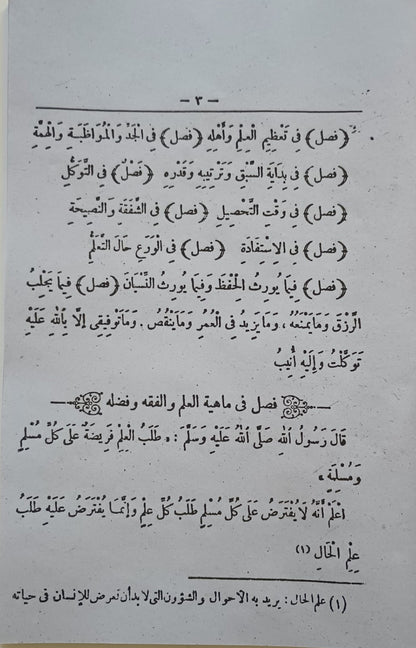 — ٣ —
(فصل) فِى تَعْظِيمِ الْعِلْمِ وَأَهْلِهِ (فصل) فِى الْجَدِّ وَالْمُوَاظَبَةِ وَالْهِمَّةِ
(فصل) فِى بِدَايَةِ السَّبْقِ وَتَرْتِيبِهِ وَقَدْرِهِ (فَصْلٌ) فِى التَّوَكُّلِ
(فصل) فِى وَقْتِ التَّحْصِيلِ (فصل) فِى الشَّفَقَةِ وَالنَّصِيحَةِ
(فصل) فِى الِاسْتِفَادَة (فصل) فِى الْوَرَعِ حَالَ التَّعَلُّمِ
(فصل) فِيمَا يُورِثُ الْحِفْظَ وَفِيمَا يُورِثُ النِّسْيَانَ (فصل) فِيمَا يَجْلِبُ
الرِّزْقَ وَمَا يَمْنَعُهُ ، وَمَا يَزِيدُ فِى الْعُمُرِ وَمَا يَنْقُصُ . وَمَا تَوْفِيقِى إِلَّا بِاللّٰهِ عَلَيْهِ
تَوَكَّلْتُ وَإِلَيْهِ أُنِيبُ
فصل فى ماهية العلم والفقه وفضله
قَالَ رَسُولُ اللّٰهِ صَلَّى اللّٰهُ عَلَيْهِ وَسَلَّمَ : « طَلَبُ الْعِلْمِ فَرِيضَةٌ عَلَى كُلِّ مُسْلِمٍ
وَمُسْلِمَةٍ »
اعْلَمْ أَنَّهُ لَا يُفْتَرَضُ عَلَى كُلِّ مُسْلِمٍ طَلَبُ كُلِّ عِلْمٍ وَإِنَّمَا يُفْتَرَضُ عَلَيْهِ طَلَبُ
عِلْمِ الْحَالِ (١)
(١) علم الحال : يريد به الأحوال والشؤون التى لابد أن تعرض للإنسان فى حياته